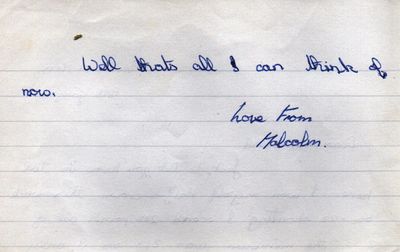 Well thats all I can think of
now.
Love From
Malcolm.